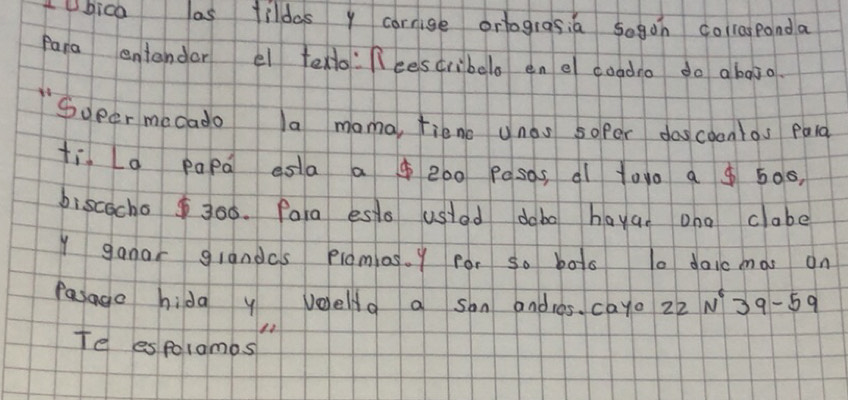 Ubica las tildes y corrige ortograsía sogún corrasponda
Para entender el texto: Reescribelo en el coadro do abajo.
"Supermecado la mama, tiene unos soper doscoantos Para
ti. La papá esta a $ 200 Pasos, el tovo a $ 500,
biscocho $ 300. Para esto usted debe hayar ona clabe
y ganar grandes Plamios. y Por so boto lo daremos un
Pasage hida y voelta a san andres. caye 22 N° 39-59
Te esporamos"